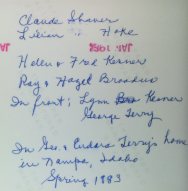 Claude Shaver
Lilian " Hoke
Helen & Fred Kesner
Ray & Hazel Brandus
In front; Lynn Kesner
George Terry
In Geo. & Cudara Terry's home
in Nampa, Idaho
Spring 1983